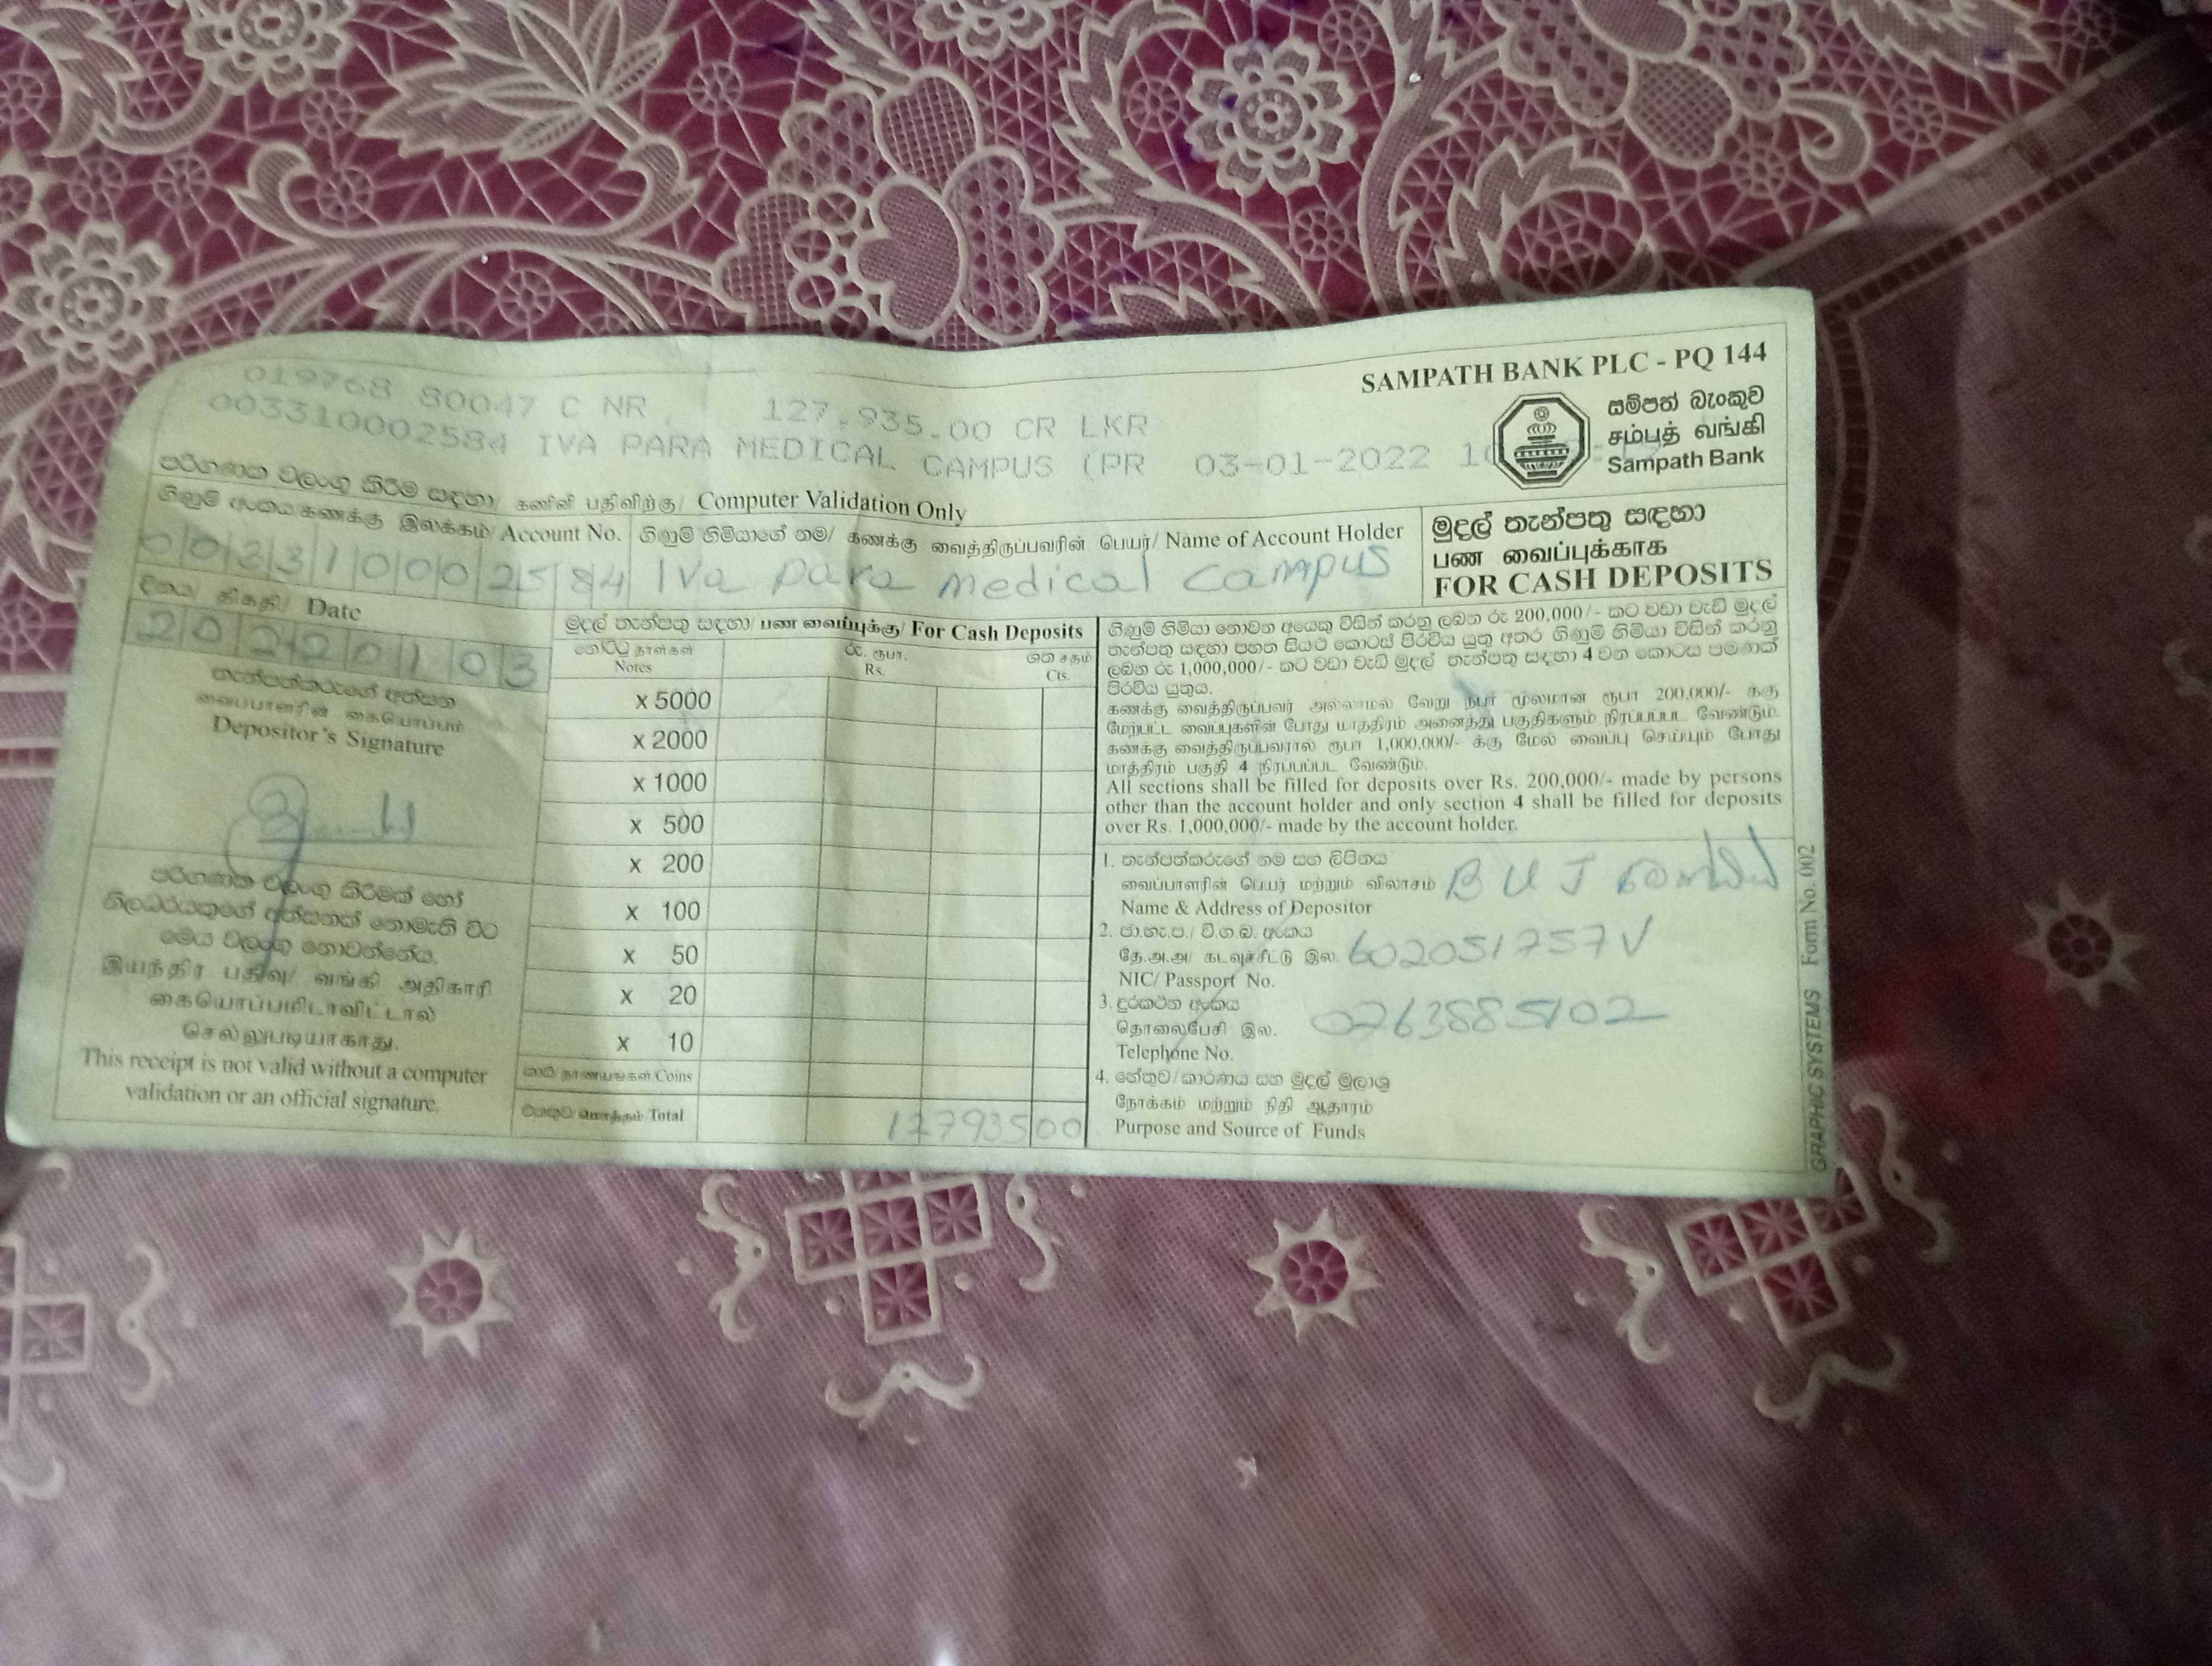 SAMPATH BANK PLC - PQ 144
019768 80047 C NR 127,935.00 CR LKR
003310002584 IVA PARA MEDICAL CAMPUS (PR 03-01-2022
සම්පත් බැංකුව
சம்பத் வங்கி
Sampath Bank
පරිගණක වලංගු කිරීම සඳහා/ கணினி பதிவிற்கு/ Computer Validation Only
ගිණුම් අංකය கணக்கு இலக்கம்/ Account No.
ගිණුම් හිමියාගේ නම/ கணக்கு வைத்திருப்பவரின் பெயர்/ Name of Account Holder
Iva para medical campus
මුදල් තැන්පතු සඳහා
பண வைப்புக்காக
FOR CASH DEPOSITS
දිනය/ திகதி/ Date
20220103
තැන්පත්කරුගේ අත්සන
வைப்பாளரின் கையொப்பம்
Depositor's Signature
පරිගණක වලංගු කිරීමක් හෝ
නිලධාරියකුගේ අත්සනක් නොමැති විට
මෙය වලංගු නොවන්නේය.
இயந்திர பதிவு/ வங்கி அதிகாரி
கையொப்பமிடாவிட்டால்
செல்லுபடியாகாது.
This receipt is not valid without a computer
validation or an official signature.
මුදල් තැන්පතු සඳහා/ பண வைப்புக்கு/ For Cash Deposits
නෝට්ටු தாள்கள்
Notes
රු. ரூபா.
Rs.
ශත சதம்
Cts.
x 5000
x 2000
x 1000
x 500
x 200
x 100
x 50
x 20
x 10
කාසි/ நாணயங்கள்/Coins
එකතුව மொத்தம்/Total
127935 00
ගිණුම් හිමියා නොවන අයෙකු විසින් කරනු ලබන රු 200,000/- කට වඩා වැඩි මුදල්
තැන්පතු සඳහා පහත සියළු කොටස් පිරවිය යුතු අතර ගිණුම් හිමියා විසින් කරනු
ලබන රු 1,000,000/- කට වඩා වැඩි මුදල් තැන්පතු සඳහා 4 වන කොටස පමණක්
පිරවිය යුතුය.
கணக்கு வைத்திருப்பவர் அல்லாமல் வேறு நபர் மூலமான ரூபா 200,000/- க்கு
மேற்பட்ட வைப்புகளின் போது மாத்திரம் அனைத்து பகுதிகளும் நிரப்பப்பட வேண்டும்.
கணக்கு வைத்திருப்பவரால் ரூபா 1,000,000/- க்கு மேல் வைப்பு செய்யும் போது
மாத்திரம் பகுதி 4 நிரப்பப்பட வேண்டும்.
All sections shall be filled for deposits over Rs. 200,000/- made by persons
other than the account holder and only section 4 shall be filled for deposits
over Rs. 1,000,000/- made by the account holder.
1. තැන්පත්කරුගේ නම සහ ලිපිනය
வைப்பாளரின் பெயர் மற்றும் விலாசம் B U J
Name & Address of Depositor
2. ජා.හැ.ප./ වි.ග.බ. අංකය
தே.அ.அ/ கடவுச்சீட்டு இல. 602051757V
NIC/ Passport No.
3. දුරකථන අංකය
தொலைபேசி இல.
Telephone No.
4. හේතුව/කාරණය සහ මුදල් මූලාශ්‍ර
நோக்கம் மற்றும் நிதி ஆதாரம்
Purpose and Source of Funds
GRAPHIC SYSTEMS Form No. 002